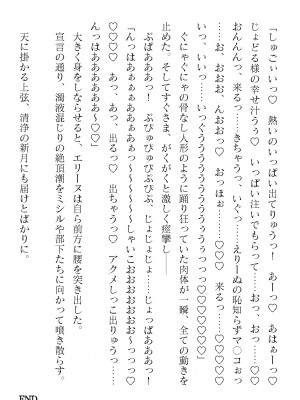 『しゅごぃいっ♡　熱いのいっぱい出てりゅうっ！　あーっ♡　あはぁーっ♡
じょどる様の幸せ汁うぅ♡　いっぱい注いでもらって……おっ、おっっ♡　んっ、
おんんんっ、来るっ……！きちゃうっ、いくっ、……えりーぬの恥知らずマ〇コぉっ
……お、おおお、んおおっ♡　おっほぉ……♡♡♡　来るっ……♡♡♡
いっっ、いいっ……いっぐぅうううううううぅぅっっっ♡♡♡♡♡♡』
　ぐにゃぐにゃの骨なし人形のように踊り狂っていた肉体が一瞬、全ての動きを
止めた。そしてすぐさま、がくがくと激しく痙攣し――
　ぶばあああっ！　ぶびゅびゅぶぶぶ、じょじょじょ……じょっばあああっ！
『んっはぁぁぁああぁぁっ～～～～～～しゃいこおおおおおお～っっっ♡
♡♡♡♡　あっ、あっ、出るっ♡　出ちゃうっ♡　アクメしっこ出りゅうっ……
んっはあああああ～♡♡』
　大きく身をしならせると、エリーヌは自ら前方に腰を突き出した。
　宣言の通り、濁液混じりの絶頂潮をミシルや部下たちに向かって噴き散らす。
　天に掛かる上弦、清浄の新月にも届けとばかりに。
END